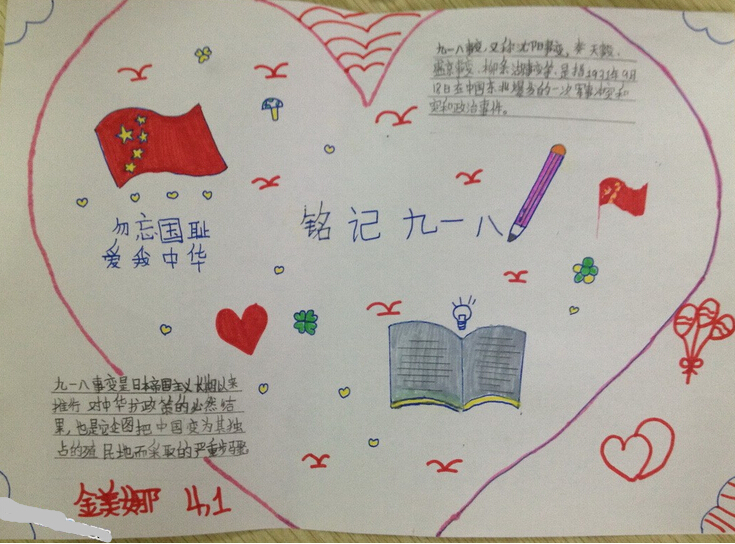 九一八事变,又称沈阳事变,奉天
事变、柳条湖事变等,是指1931年9月
18日在中国东北爆发的一次军事冲突和
和政治事件。
铭记九一八
勿忘国耻
爱我中华
九一八事变是日本帝国主义长期以来
推行对中华扩政策的必然结
果,也是它企图把中国变为其独
占的殖民地而采取的严重步骤
金美娜 4,1